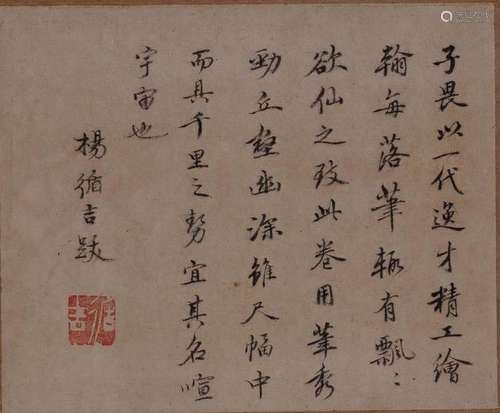 子畏以一代逸才精工繪
翰每落筆輒有飄〻
欲仙之致此卷用筆秀
勁丘壑幽深雖尺幅中
而具千里之勢宜其名喧
宇宙也
楊循吉跋
循吉